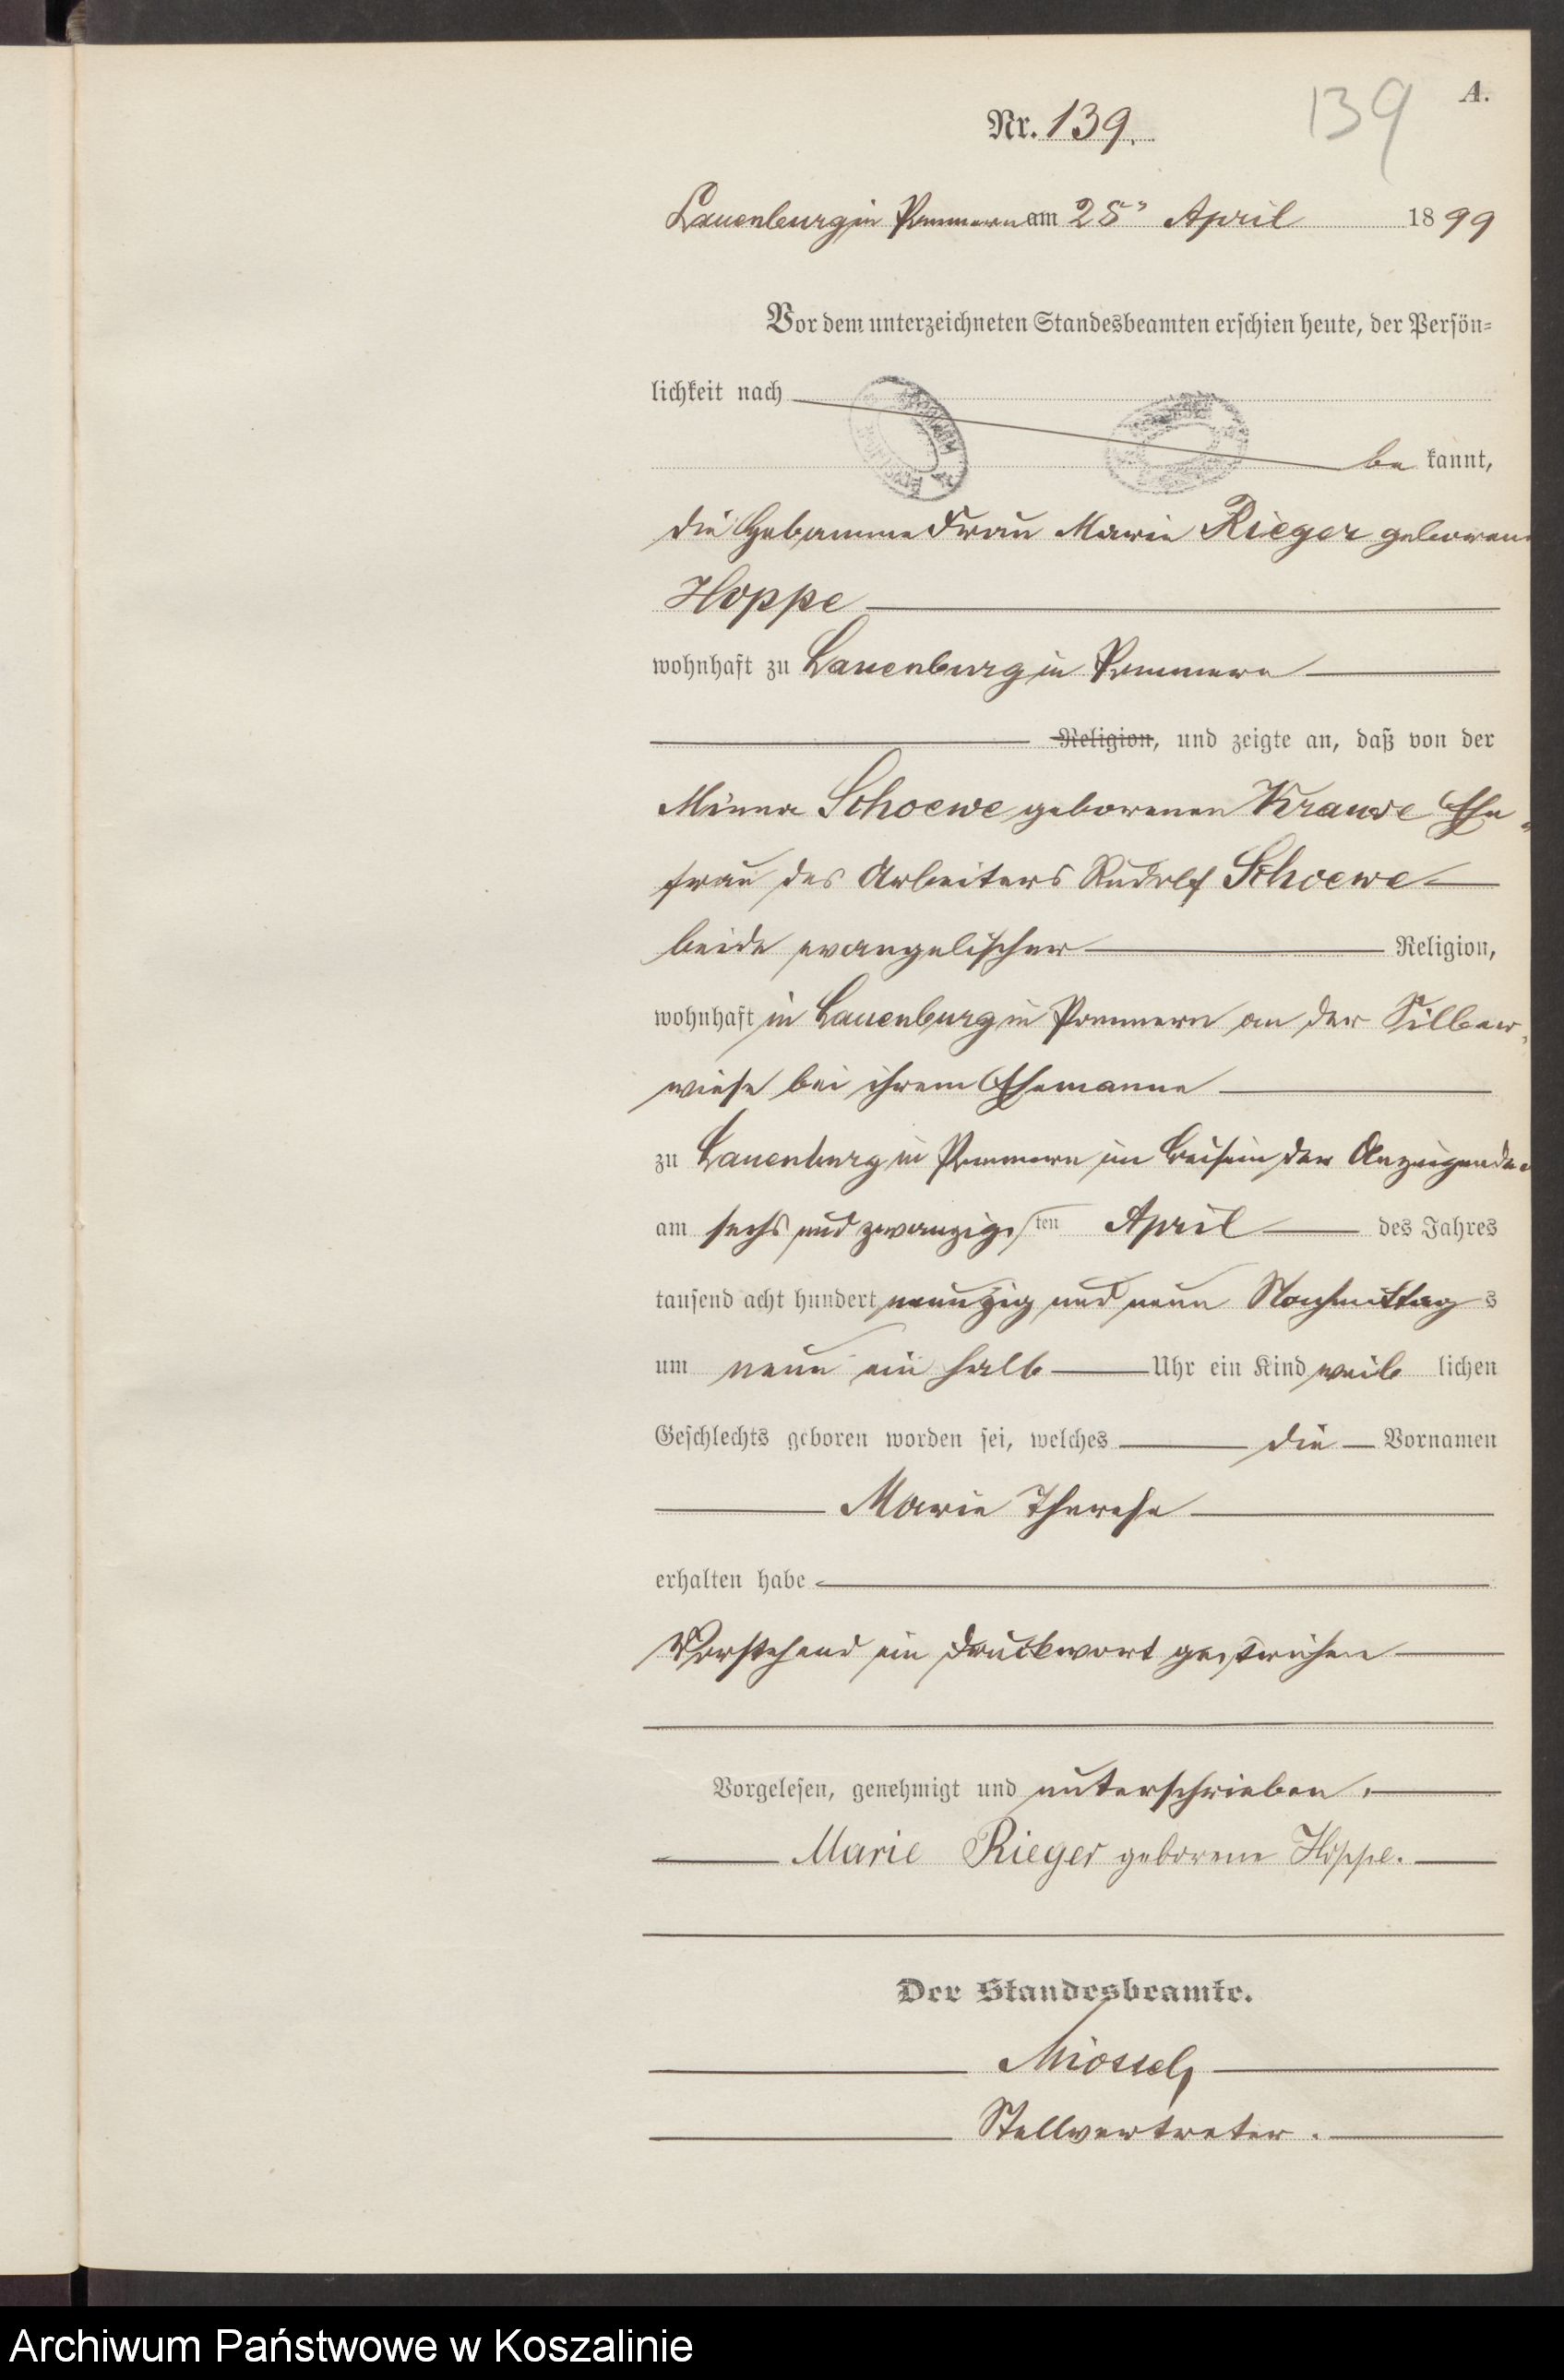 A.
139
Nr. 139.
Lauenburg in Pommern am 28" April 1899
Vor dem unterzeichneten Standesbeamten erschien heute, der Persön-
lichkeit nach
be kannt,
die Hebamme Frau Marie Rieger geborene
Hoppe
wohnhaft zu Lauenburg in Pommern
Religion, und zeigte an, daß von der
Minna Schoewe geborenen Krause Ehe-
frau des Arbeiters Rudolf Schoewe
beide evangelischer Religion,
wohnhaft in Lauenburg in Pommern an der Silber-
wiese bei ihrem Ehemanne
zu Lauenburg in Pommern im Beisein der Anzeigenden
am sechs und zwanzigsten April des Jahres
tausend acht hundert neunzig und neun Nachmittags
um neun ein halb Uhr ein Kind weiblichen
Geschlechts geboren worden sei, welches die Vornamen
Marie Therese
erhalten habe
Vorstehend ein Druckwort gestrichen
Vorgelesen, genehmigt und unterschrieben.
Marie Rieger geborene Hoppe.
Der Standesbeamte.
Stellvertreter.
Archiwum Państwowe w Koszalinie